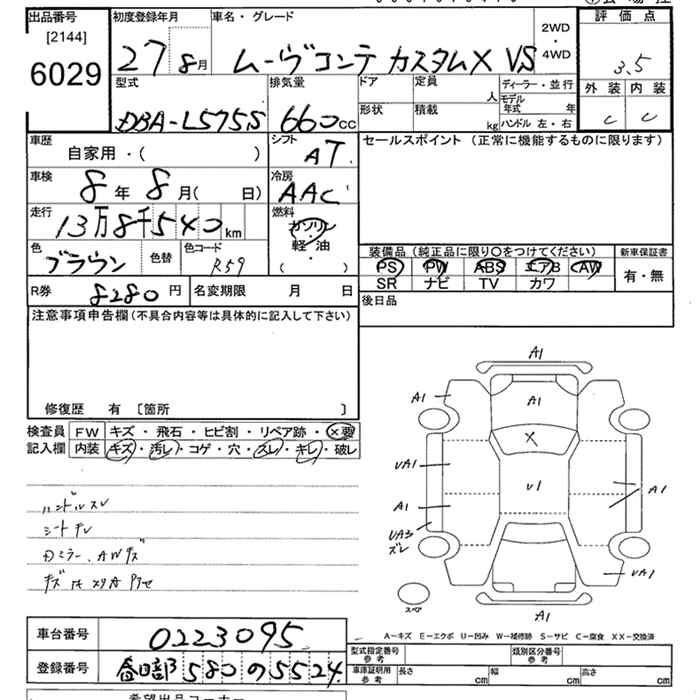 出品番号
[2144]
6029
初度登録年月
27 8月
車名・グレード
ムーヴコンテ カスタムX VS
2WD
・
4WD
評価点
3.5
外装 内装
C C
型式
DBA-L575S
排気量
660cc
ドア
定員
人
形状
積載
kg
ディーラー・並行
モデル年式 年
ハンドル 左・右
車歴
自家用・( )
シフト
AT
車検
8年 8月( 日)
冷房
AAC
走行
13万8千540km
燃料
ガソリン
・
軽油
( )
色
ブラウン
色替
色コード
R59
R券
8280円
名変期限 月 日
セールスポイント (正常に機能するものに限ります)
装備品 (純正品に限り〇をつけてください)
PS PW ABS エアB AW
SR ナビ TV カワ
新車保証書
有・無
後日品
注意事項申告欄 (不具合内容等は具体的に記入して下さい)
修復歴 有 [箇所 ]
検査員記入欄
FW キズ・飛石・ヒビ割・リペア跡・×要
内装 キズ・汚レ・コゲ・穴・スレ・キレ・破レ
ハンドルスレ
シートキレ
Dミラー、AWキズ
A1
A1
A1
X
UA1
U1
A1
A1
UA3
ズレ
UA1
A1
スペア
A-キズ E-エクボ U-凹み W-補修跡 S-サビ C-腐食 XX-交換済
車台番号
0223095
登録番号
春日部 580 の 5524
型式指定番号
参考
類別区分番号
参考
車庫証明用
参考
長さ cm
幅 cm
高さ cm
希望出品コーナー